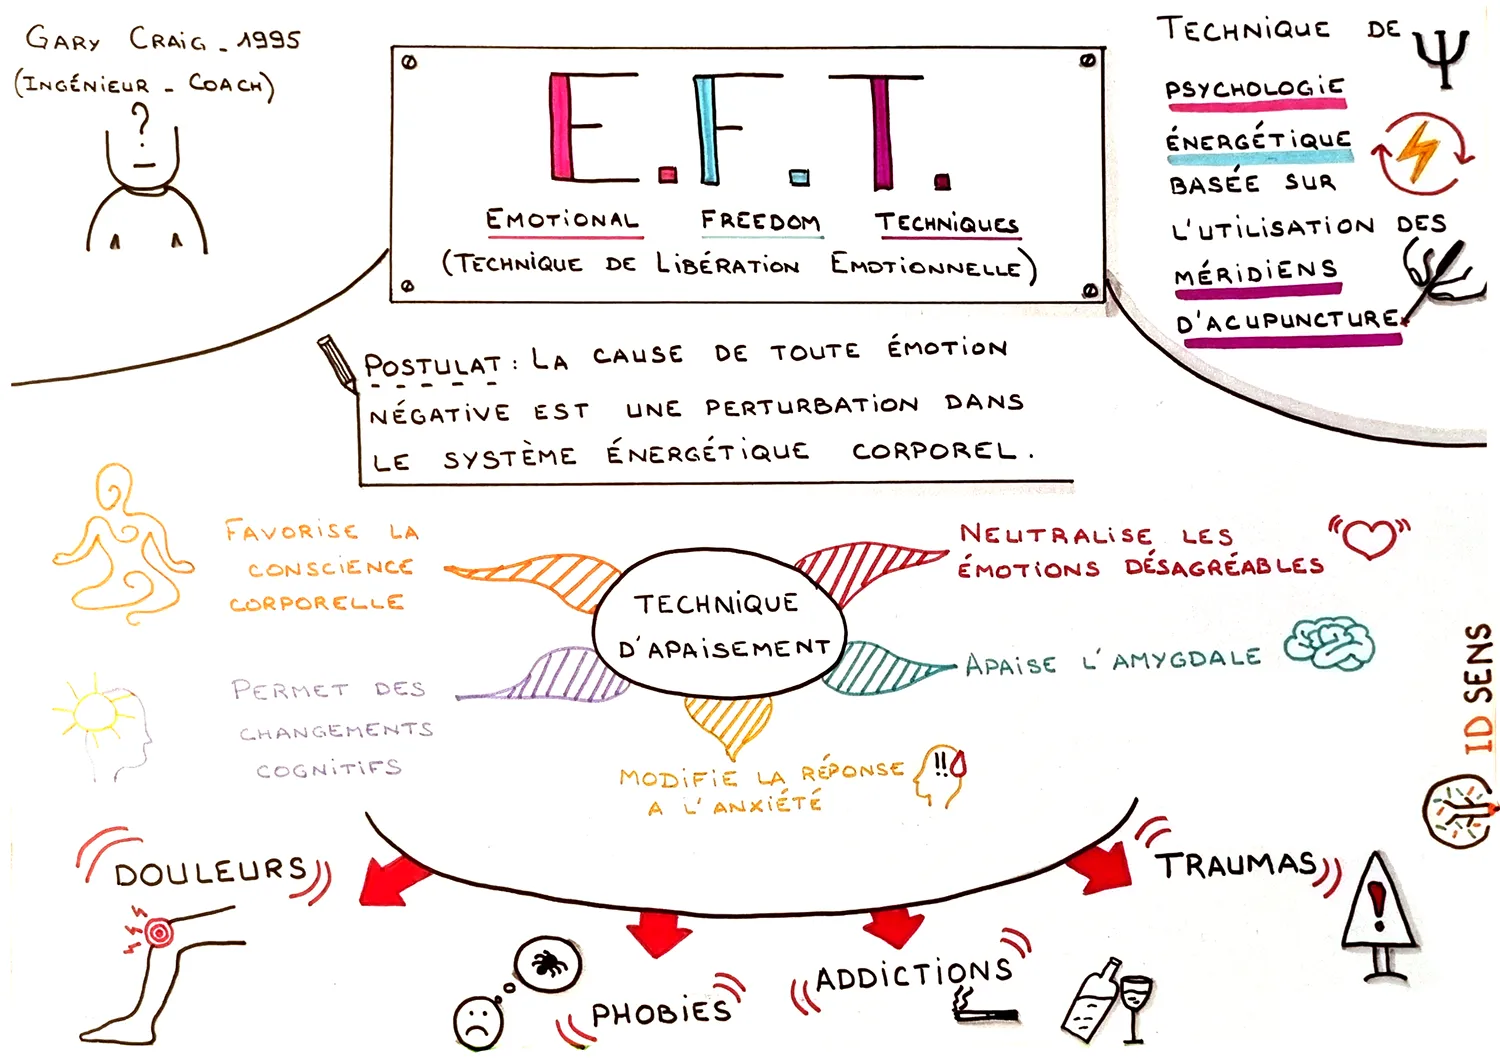 GARY CRAIG - 1995
(INGÉNIEUR - COACH)
?
E.F.T.
EMOTIONAL FREEDOM TECHNIQUES
(TECHNIQUE DE LIBÉRATION EMOTIONNELLE)
TECHNIQUE DE Ψ
PSYCHOLOGIE
ÉNERGÉTIQUE
BASÉE SUR
L'UTILISATION DES
MÉRIDIENS
D'ACUPUNCTURE
POSTULAT : LA CAUSE DE TOUTE ÉMOTION
NÉGATIVE EST UNE PERTURBATION DANS
LE SYSTÈME ÉNERGÉTIQUE CORPOREL.
FAVORISE LA
CONSCIENCE
CORPORELLE
NEUTRALISE LES
ÉMOTIONS DÉSAGRÉABLES
TECHNIQUE
D'APAISEMENT
PERMET DES
CHANGEMENTS
COGNITIFS
APAISE L'AMYGDALE
MODIFIE LA RÉPONSE
A L'ANXIÉTÉ
!!
ID SENS
DOULEURS
PHOBIES
ADDICTIONS
TRAUMAS
!